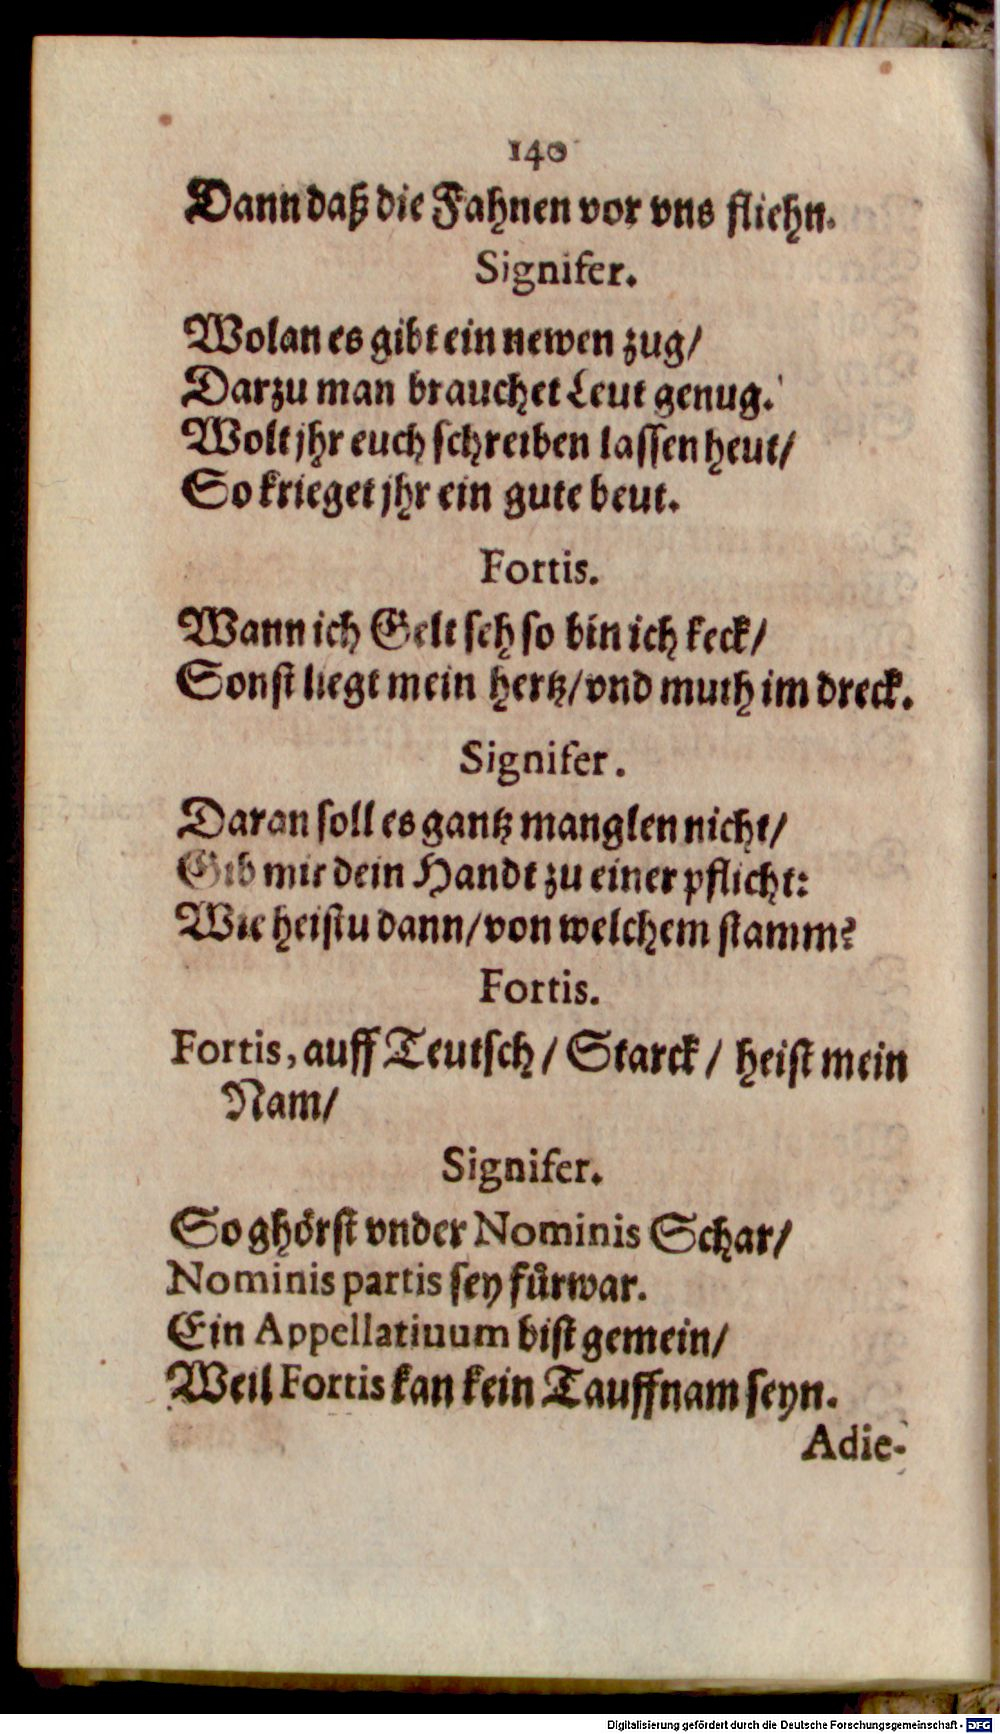 140
Dann daß die Fahnen vor vns fliehn.
Signifer.
Wolan es gibt ein newen zug/
Darzu man brauchet Leut genug.
Wolt jhr euch schreiben lassen heut/
So krieget jhr ein gute beut.
Fortis.
Wann ich Gelt seh so bin ich keck/
Sonst liegt mein hertz/vnd muth im dreck.
Signifer.
Daran soll es gantz manglen nicht/
Gib mir dein Handt zu einer pflicht:
Wie heistu dann/von welchem stamm?
Fortis.
Fortis, auff Teutsch/ Starck/ heist mein
Nam/
Signifer.
So ghörst vnder Nominis Schar/
Nominis partis sey fürwar.
Ein Appellatiuum bist gemein/
Weil Fortis kan kein Tauffnam seyn.
Adie-
Digitalisierung gefördert durch die Deutsche Forschungsgemeinschaft - DFG